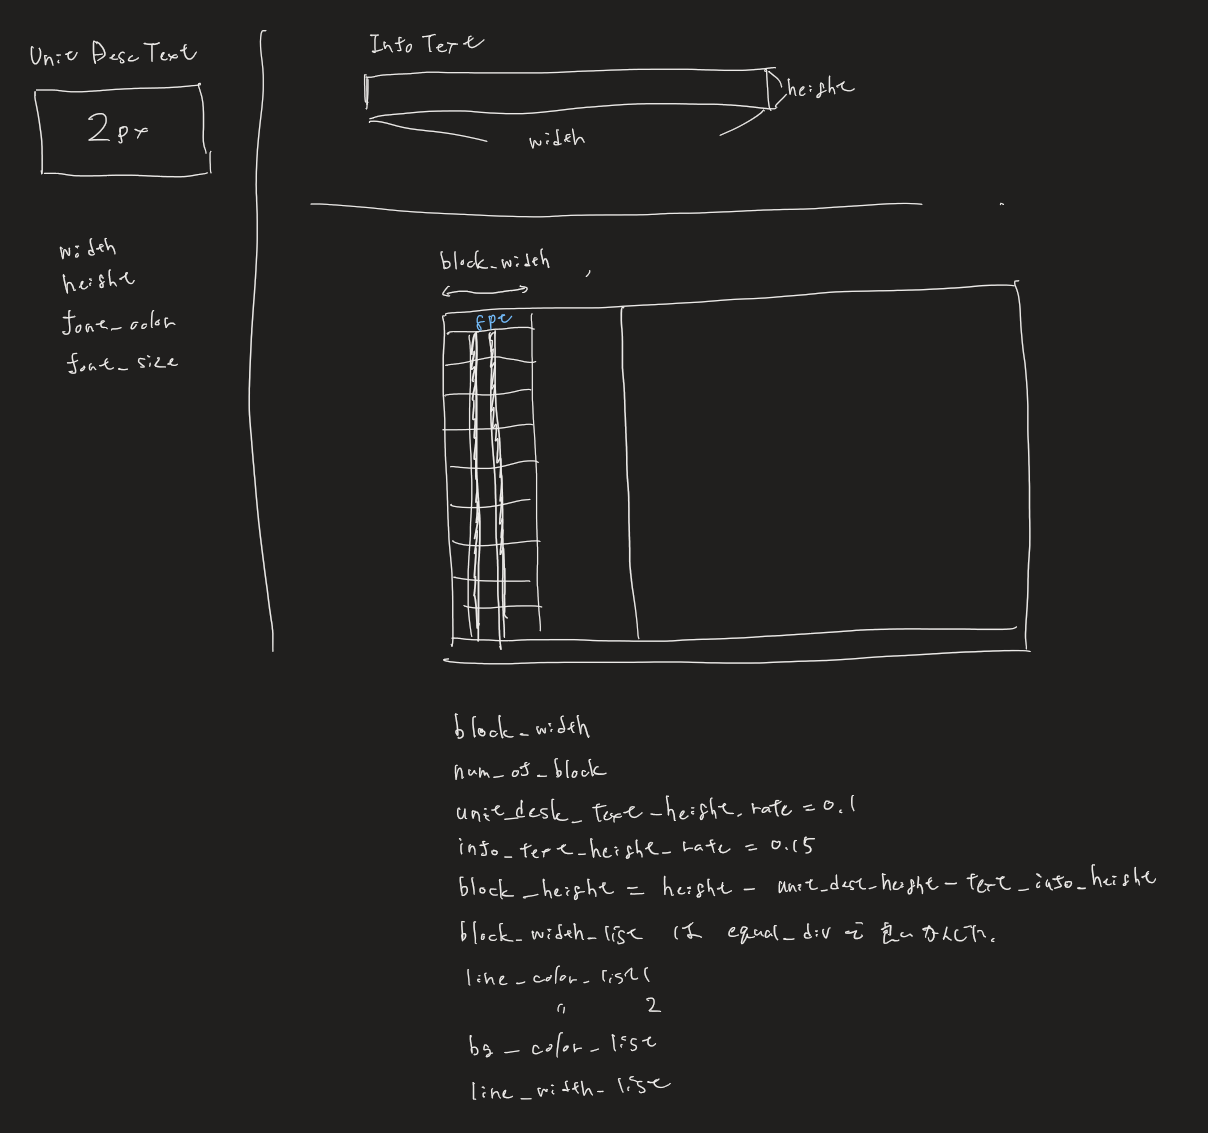 Unit Desc Text
2px
width
height
font_color
font_size
Info Text
height
width
block_width ,
8px
block_width
num_of_block
unit_desk_text_height_rate = 0.1
info_text_height_rate = 0.15
block_height = height - unit_desc_height - text_info_height
block_width_list は equal_div で
line_color_list1
〃 2
bg_color_list
line_width_list